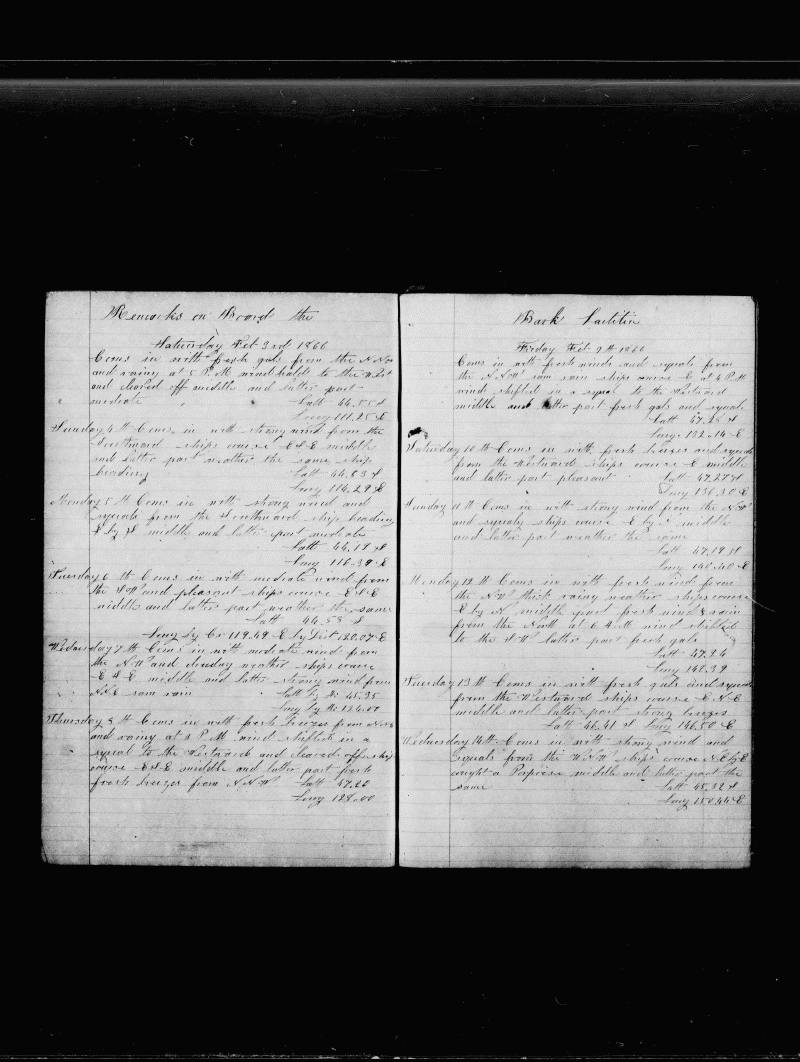 Remarks on Board the
Saturday Feb 3rd 1866
Coms in with fresh gals from the N N W
and rainy at 5 P.M wind halds to the West
and cleared off middle and latter part
modcate Latt 44.55 S
Long 111.25 E
Sunday 4th Coms in with strong wind from the
Southward ships course E S E middle
and latter part weather the same ship
heading Latt 44.53 S
Long 114.29 E
Monday 5th Coms in with strong wind and
squals from the Southward ship heading
E by S middle and latter part modcate
Latt 44.19 S
Long 116.39 E
Tuesday 6th Coms in with modcate wind from
the S W and pleasant ships course E S E
middle and latter part weather the same
Latt 44.53 S
Long by Cr 119.49 E by Dist 120.07 E
Wednesday 7th Coms in with modcate winds from
the N W and clouday weather ships course
E S E middle and latter strong wind from
N N E som rain Latt by Ac 45.35
Long by Ac 124.00
Thursday 8th Coms in with fresh breezes from N N E
and rainy at 8 P.M wind shifted in a
squal to the Westward and cleared off ship
course E S E middle and latter part fresh
fresh breezes from N N W Latt 47.20
Long 128.00
Bark Laetitia
Firday Feb 9th 1866
Coms in with fresh winds and squals from
the N N W som rain ships course E at 4 P.M
wind shifted in a squal to the Westward
middle and latter part fresh gals and squals
Latt 47.25 S
Long 132.14 E
Saturday 10th Coms in with fresh breezes and squals
from the Westward ships course E middle
and latter part pleasant Latt 47.27 S
Long 136.30 E
Sunday 11th Coms in with strong wind from the N W
and squaly ships course E by S middle
and latter part weather the same
Latt 47.19 S
Long 140.40 E
Monday 12th Coms in with fresh winds from
the N W thick rainy weather ships course
E by N middle part fresh wind & rain
from the North at 6 A M wind shifted
to the S W latter part fresh gals
Latt 47.34
Long 143.39
Tuesday 13th Coms in with fresh gals and squals
from the Westward ships course E N E
middle and latter part strong breezes
Latt 46.41 S Long 146.50 E
Wednesday 14th Coms in with strong wind and
squals from the W N W ships course N E by E
caught a Porpoise middle and latter part the
same Latt 45.32 S
Long 150.44 E